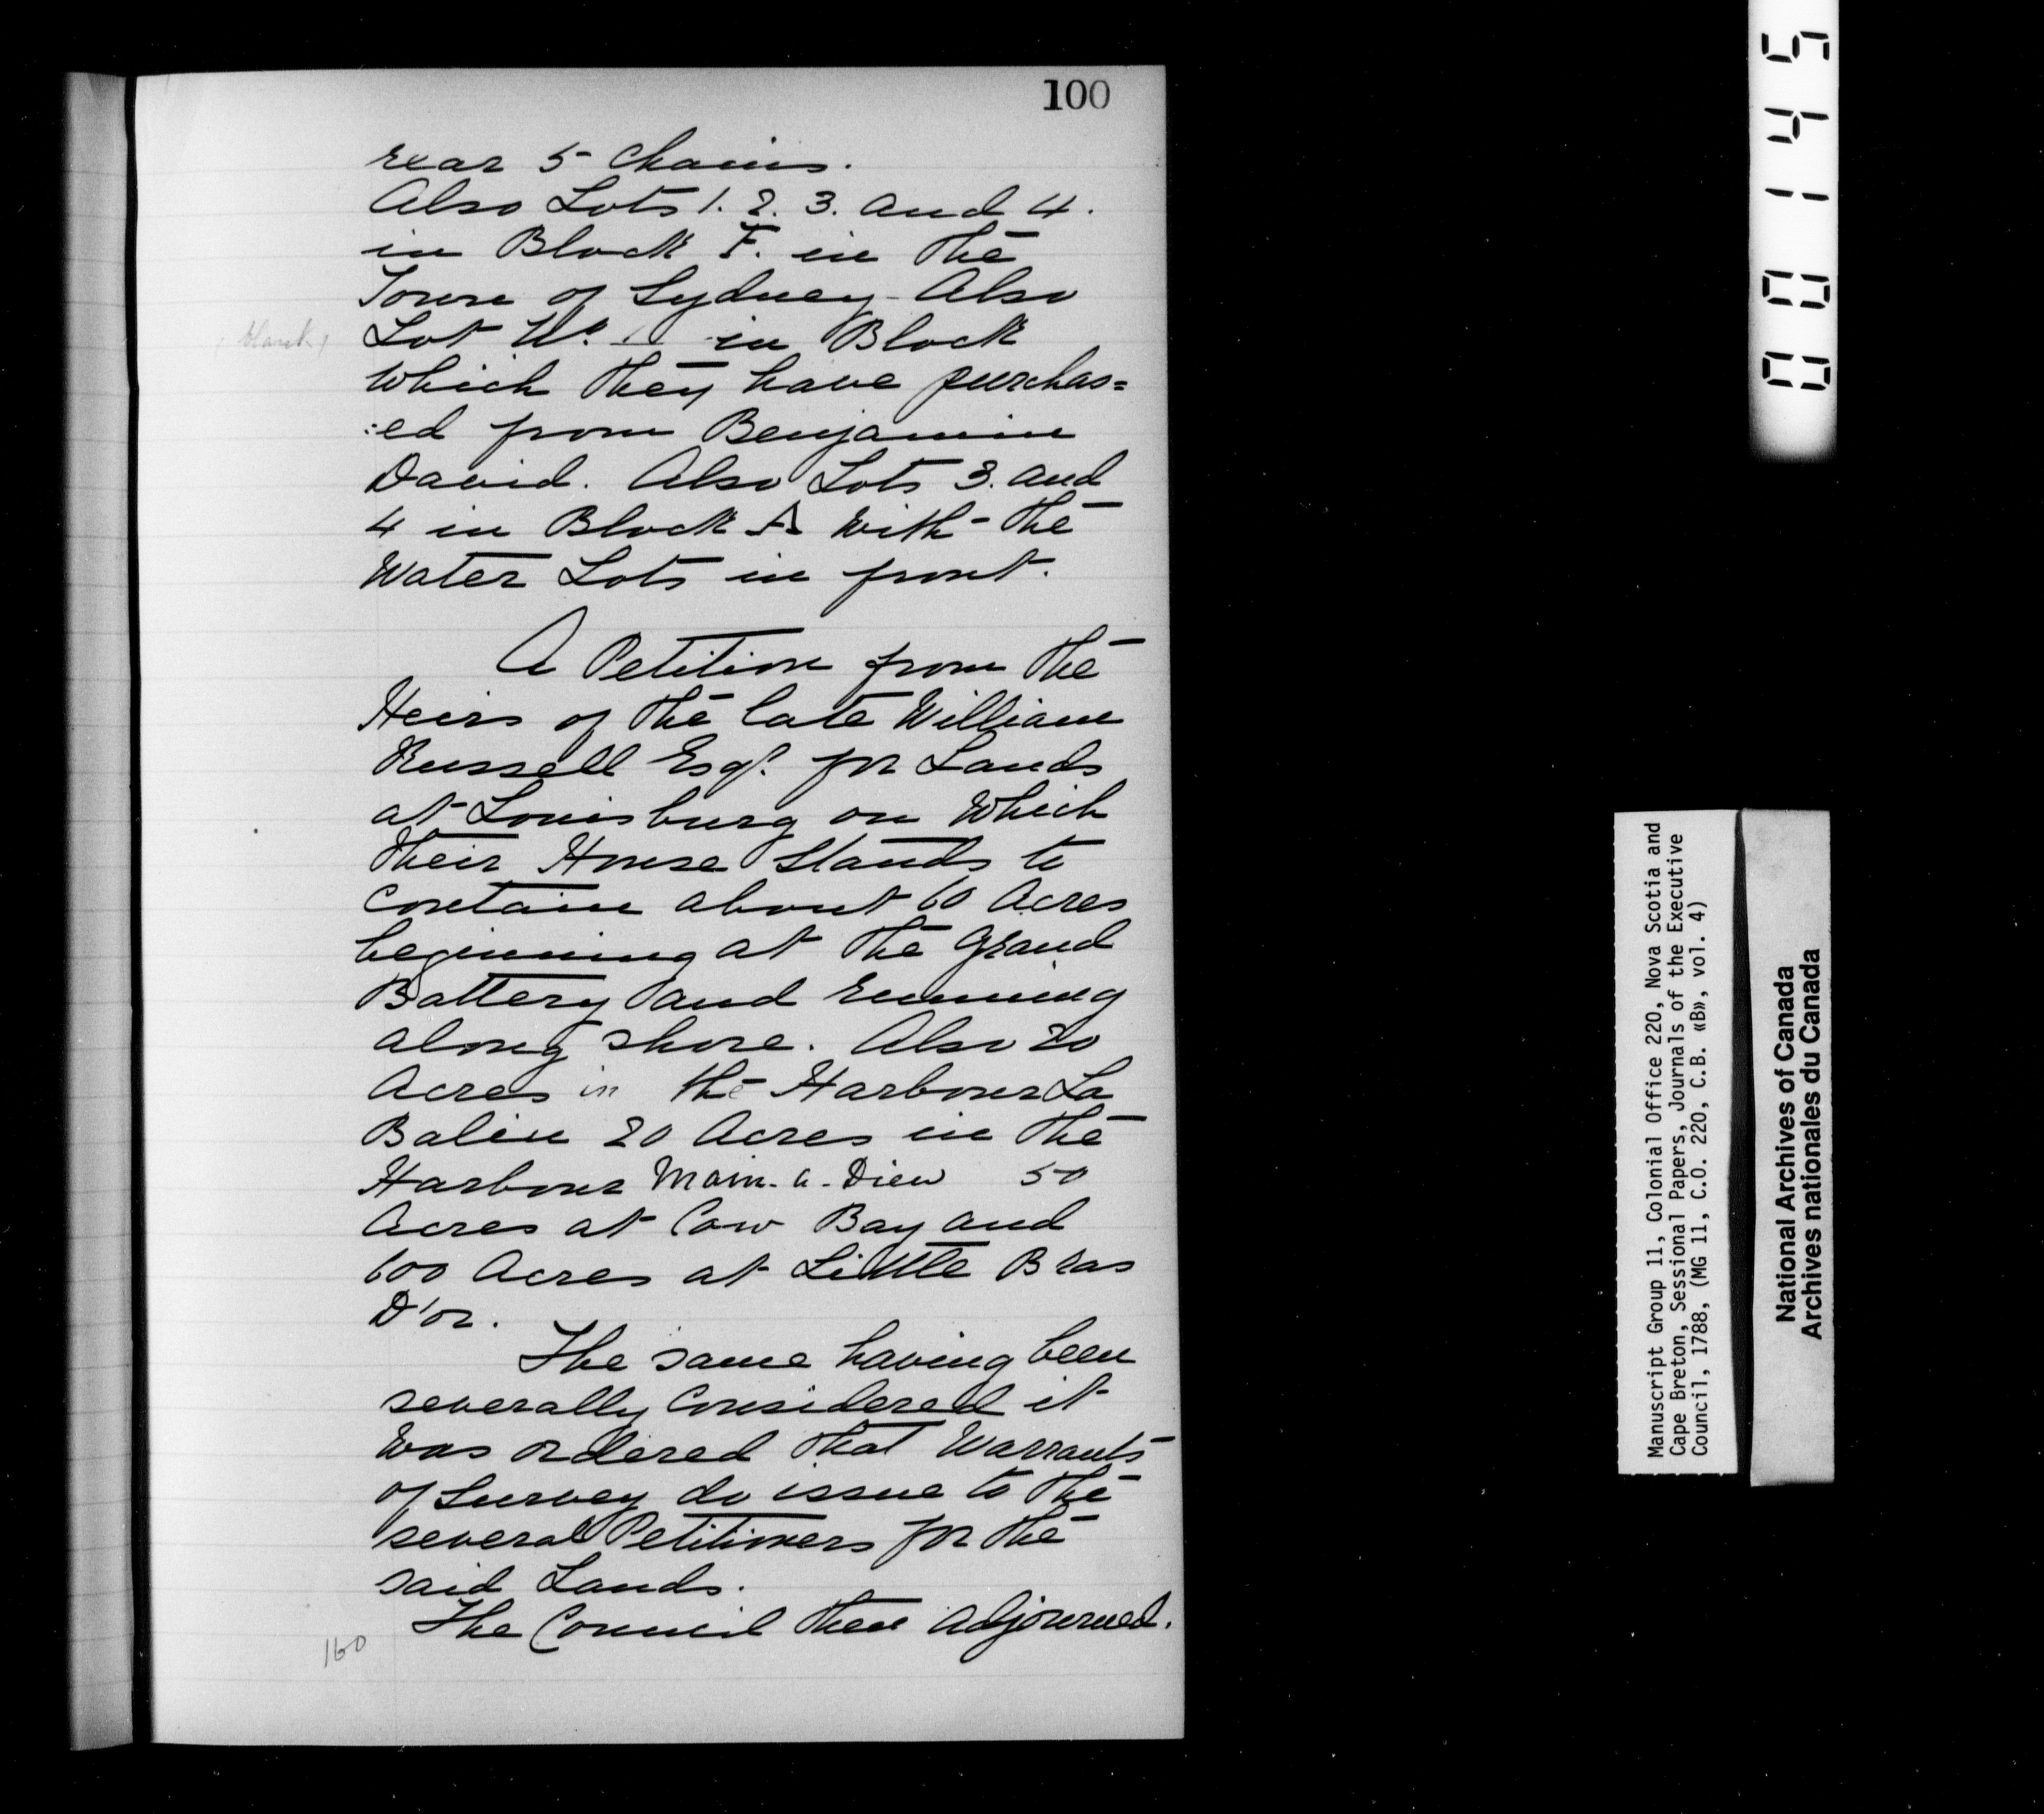 100
rear 5 Chains.
Also Lots 1. 2. 3. and 4.
in Block F. in the
Town of Sydney - Also
(blank) Lot No. in Block
which they have purchas=
:ed from Benjamin
David. Also Lots 3. and
4 in Block A with the
Water Lots in front.
A Petition from the
Heirs of the late William
Russell Esqr. for Lands
at Louisburg on which
their House Stands to
Contain about 60 Acres
beginning at the Grand
Battery and running
along shore. Also 20
Acres in the Harbour La
Balin 20 Acres in the
Harbour Main-a-Dieu 50
Acres at Cow Bay and
600 Acres at Little Bras
D'or.
The same having been
severally Considered it
was ordered that Warrants
of Survey do issue to the
several Petitioners for the
said Lands.
The Council then adjourned.
160
00145
Manuscript Group 11, Colonial Office 220, Nova Scotia and
Cape Breton, Sessional Papers, Journals of the Executive
Council, 1788, (MG 11, C.O. 220, C.B. «B», vol. 4)
National Archives of Canada
Archives nationales du Canada